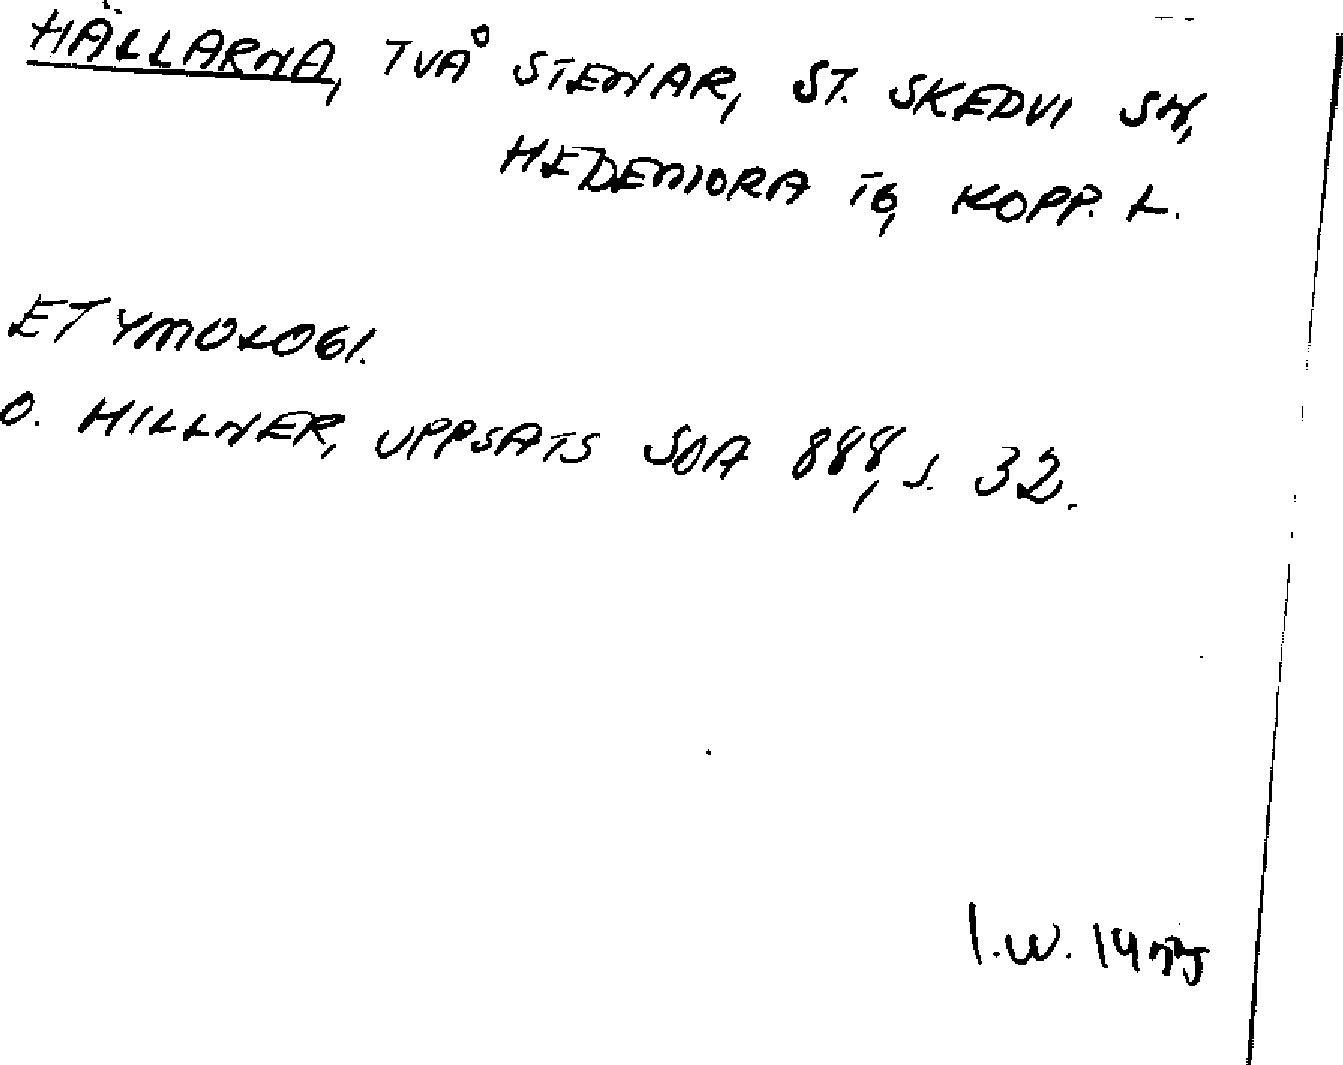 HÄLLARNA, TVÅ STENAR, ST. SKEDVI SN,
HEDEMORA TG, KOPP. L.
ETYMOLOGI.
O. HILLNER, UPPSATS SOA 888, S. 32.
I.W.